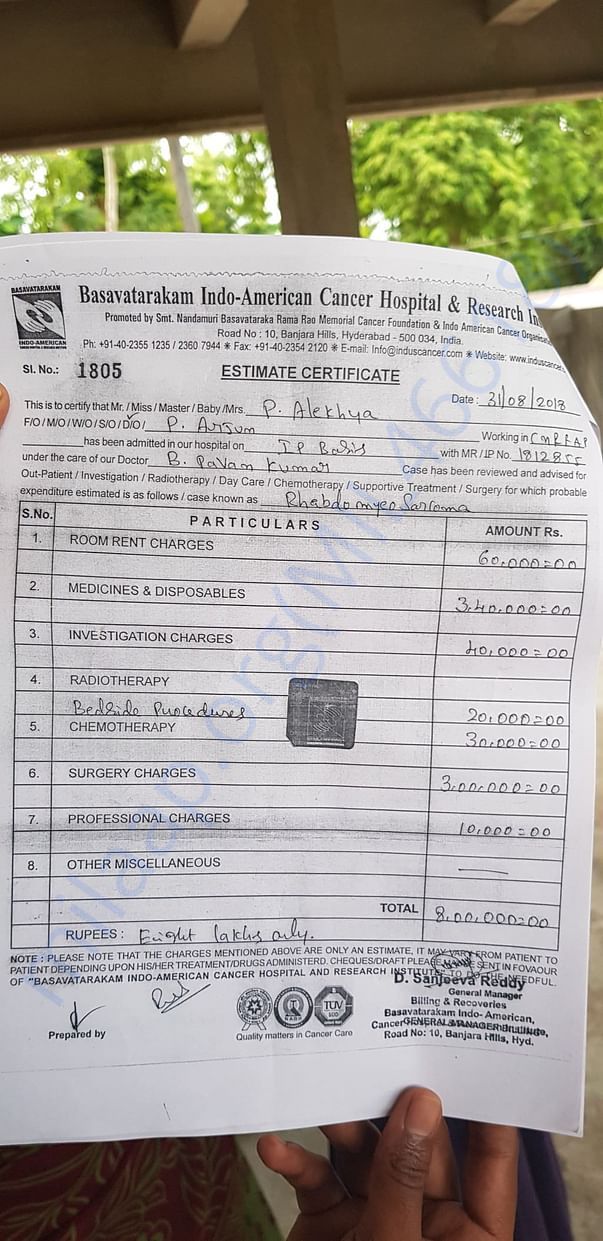 BASAVATARAKAM
INDO-AMERICAN
Basavatarakam Indo-American Cancer Hospital & Research In
Promoted by Smt. Nandamuri Basavataraka Rama Rao Memorial Cancer Foundation & Indo American Cancer Organis
Road No : 10, Banjara Hills, Hyderabad - 500 034, India.
Ph: +91-40-2355 1235 / 2360 7944 * Fax: +91-40-2354 2120 * E-mail: Info@induscancer.com * Website: www.induscancer
Sl. No.: 1805 ESTIMATE CERTIFICATE
Date : 31/08/2018
This is to certify that Mr. / Miss / Master / Baby /Mrs. P. Alekhya
F/O / M/O / W/O / S/O / D/O / P. Arjun Working in CMRF AP
has been admitted in our hospital on IP Basis with MR / IP No. 1812855
under the care of our Doctor B. Pavan Kumar Case has been reviewed and advised for
Out-Patient / Investigation / Radiotherapy / Day Care / Chemotherapy / Supportive Treatment / Surgery for which probable
expenditure estimated is as follows / case known as Rhabdomyeo Sarcoma
S.No. PARTICULARS AMOUNT Rs.
1. ROOM RENT CHARGES 60,000=00
2. MEDICINES & DISPOSABLES 3,40,000=00
3. INVESTIGATION CHARGES 40,000=00
4. RADIOTHERAPY
Bedside Procedures 20,000=00
5. CHEMOTHERAPY 30,000=00
6. SURGERY CHARGES 3,00,000=00
7. PROFESSIONAL CHARGES 10,000=00
8. OTHER MISCELLANEOUS —
TOTAL 8,00,000=00
RUPEES : Eight lakhs only.
NOTE : PLEASE NOTE THAT THE CHARGES MENTIONED ABOVE ARE ONLY AN ESTIMATE, IT MAY VARY FROM PATIENT TO
PATIENT DEPENDING UPON HIS/HER TREATMENT/DRUGS ADMINISTERD. CHEQUES/DRAFT PLEASE SENT IN FOVAOUR
OF "BASAVATARAKAM INDO-AMERICAN CANCER HOSPITAL AND RESEARCH INSTITUTE" TO DO THE NEEDFUL.
D. Sanjeeva Reddy
General Manager
Billing & Recoveries
Basavatarakam Indo- American,
Cancer
GENERAL MANAGER
Road No: 10, Banjara Hills, Hyd.
Prepared by
TUV
Quality matters in Cancer Care
milaap.org